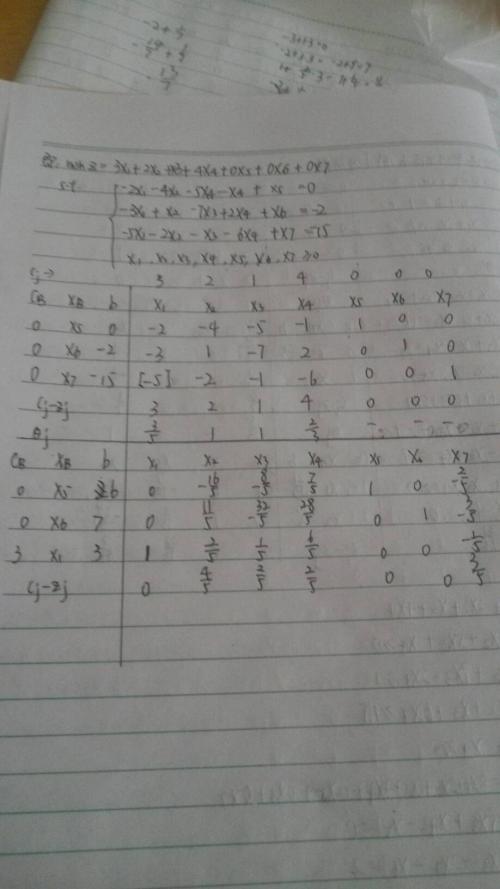 -2+1/5
-3+3=0
解: min z = 3x1+2x2+x3+4x4+0x5+0x6+0x7
s.t. -2x1-4x2-5x3-x4+x5=0
-3x1+x2-7x3+2x4+x6=-2
-5x1-2x2-x3-6x4+x7=-15
x1, x2, x3, x4, x5, x6, x7 ≥0
Cj→ 3 2 1 4 0 0 0
CB XB b x1 x2 x3 x4 x5 x6 x7
0 x5 0 -2 -4 -5 -1 1 0 0
0 x6 -2 -3 1 -7 2 0 1 0
0 x7 -15 [-5] -2 -1 -6 0 0 1
Cj-zj 3 2 1 4 0 0 0
θj 3/5 1 1 2/3 - - -
CB XB b x1 x2 x3 x4 x5 x6 x7
0 x5 6 0 -16/5 -8/5 7/5 1 0 -2/5
0 x6 7 0 11/5 -32/5 28/5 0 1 -3/5
3 x1 3 1 2/5 1/5 6/5 0 0 -1/5
Cj-zj 0 4/5 2/5 2/5 0 0 3/5